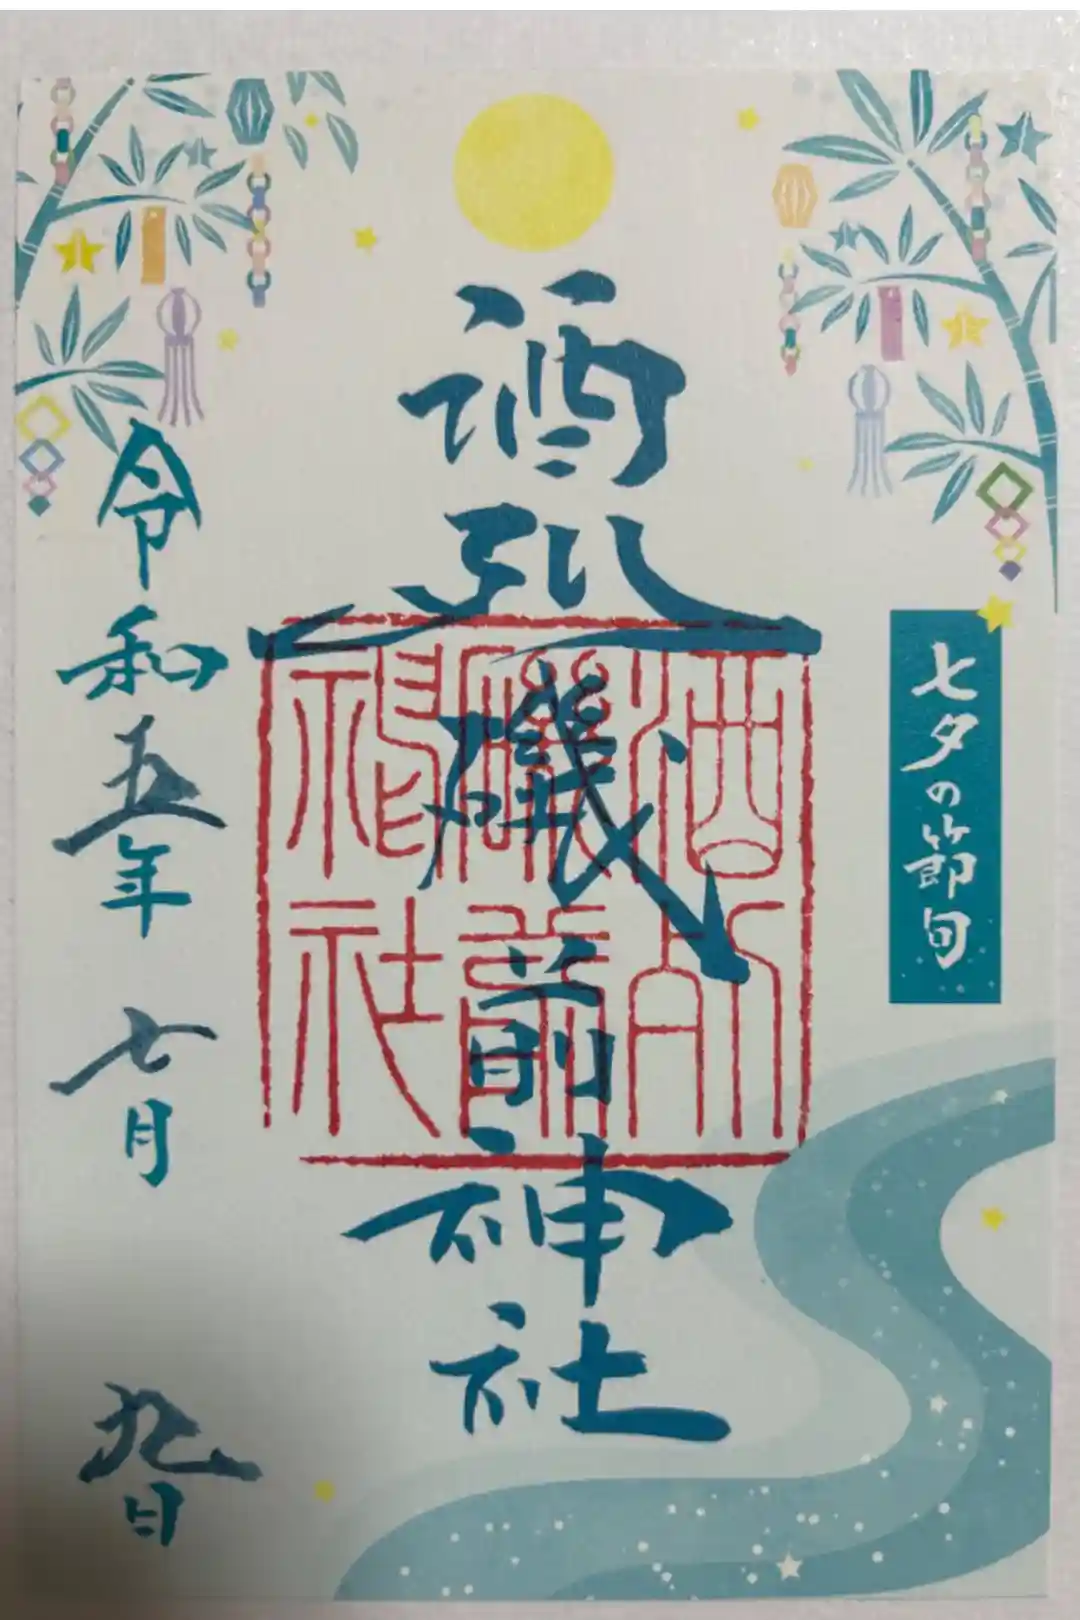 七夕の節句
酒列磯前神社
酒列
磯前
神社
令和五年 七月 九日